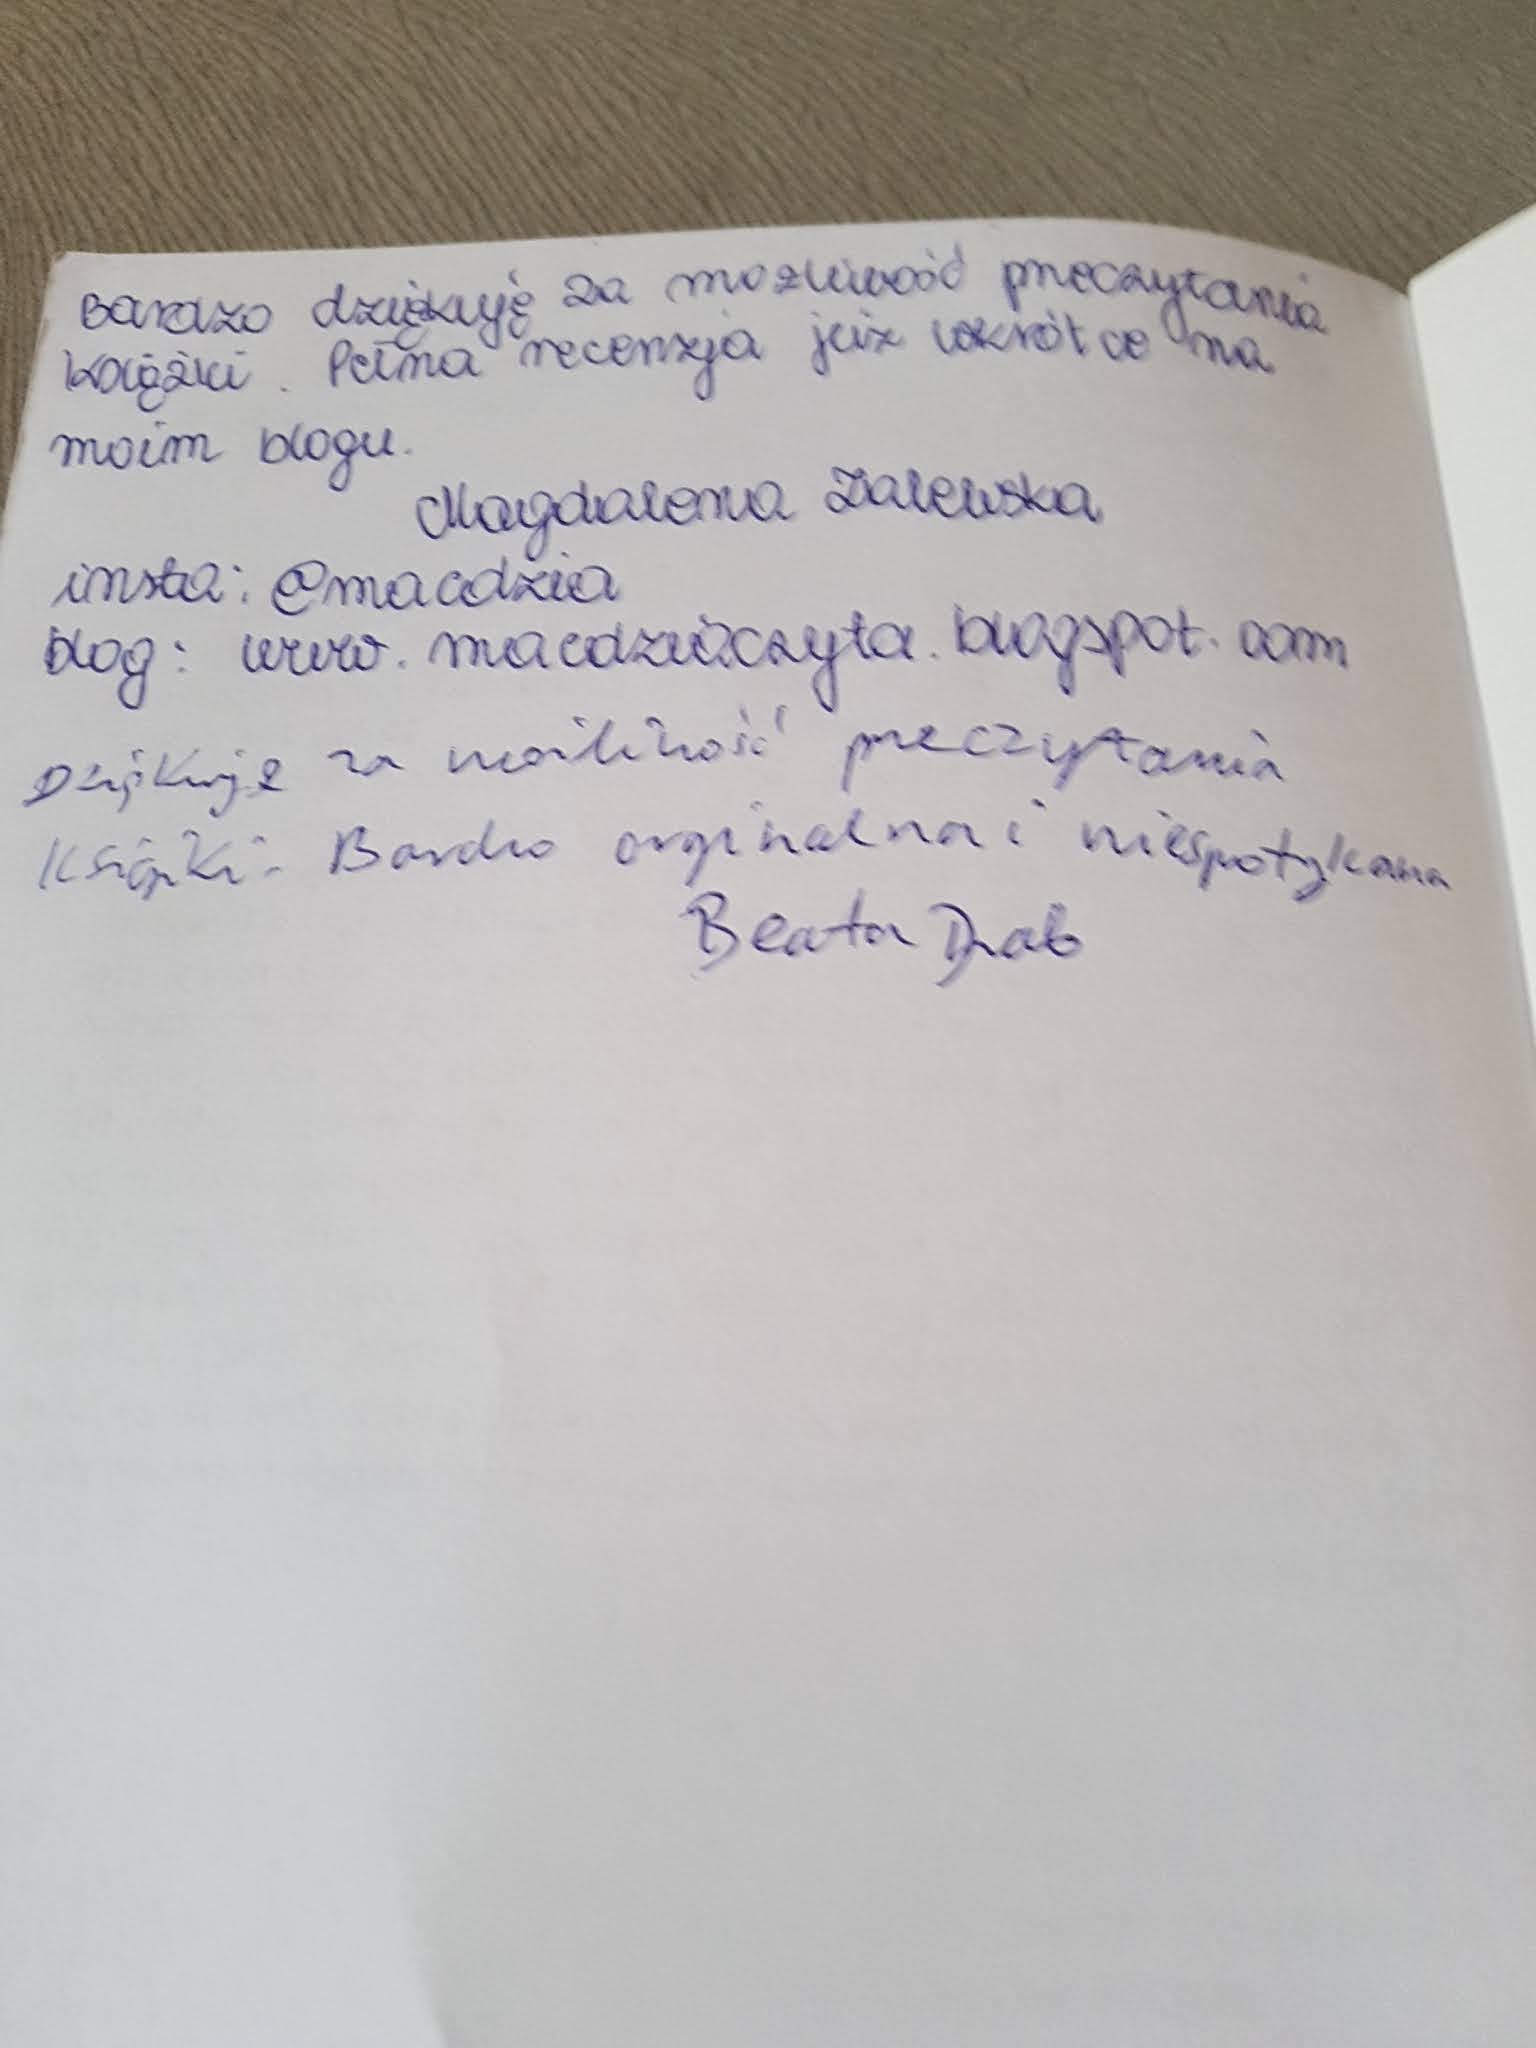 Bardzo dziękuję za możliwość przeczytania
książki. Pełna recenzja już wkrótce na
moim blogu.
Magdalena Zalewska
insta: @macdzia
blog: www.macdziaczyta.blogspot.com
Dziękuję za możliwość przeczytania
Książki. Bardzo orginalna i niespotykana
Beata Drab